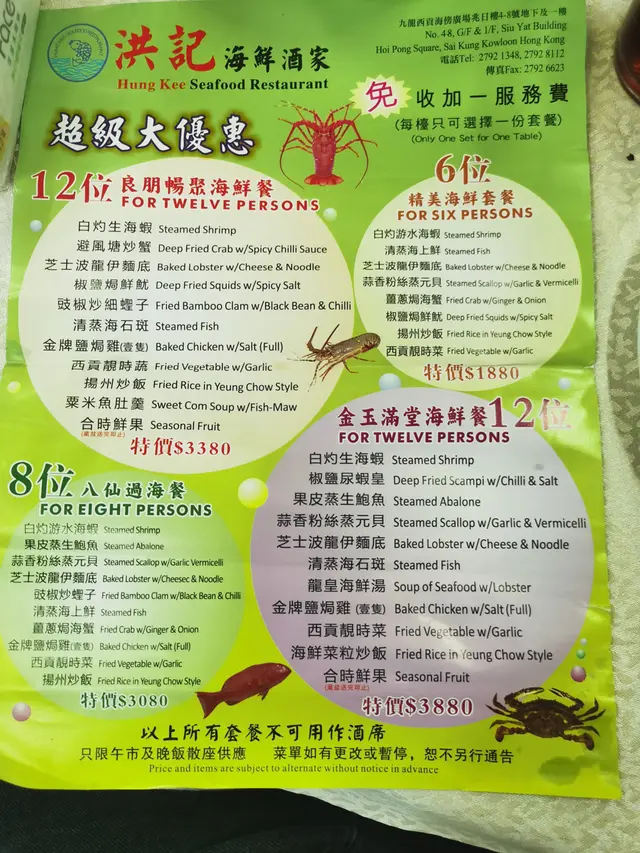 洪記海鮮酒家
Hung Kee Seafood Restaurant
九龍西貢海傍廣場兆日樓4-8號地下及一樓
No. 48, G/F & 1/F, Siu Yat Building
Hoi Pong Square, Sai Kung Kowloon Hong Kong
電話Tel: 2792 1348, 2792 8112
傳真Fax: 2792 6623
超級大優惠
免收加一服務費
(每檯只可選擇一份套餐)
(Only One Set for One Table)
12位良朋暢聚海鮮餐
FOR TWELVE PERSONS
白灼生海蝦 Steamed Shrimp
避風塘炒蟹 Deep Fried Crab w/Spicy Chilli Sauce
芝士波龍伊麵底 Baked Lobster w/Cheese & Noodle
椒鹽焗鮮魷 Deep Fried Squids w/Spicy Salt
豉椒炒細蟶子 Fried Bamboo Clam w/Black Bean & Chilli
清蒸海石斑 Steamed Fish
金牌鹽焗雞(壹隻) Baked Chicken w/Salt (Full)
西貢靚時蔬 Fried Vegetable w/Garlic
揚州炒飯 Fried Rice in Yeung Chow Style
粟米魚肚羹 Sweet Corn Soup w/Fish-Maw
合時鮮果 Seasonal Fruit
特價$3380
6位
精美海鮮套餐
FOR SIX PERSONS
白灼游水海蝦 Steamed Shrimp
清蒸海上鮮 Steamed Fish
芝士波龍伊麵底 Baked Lobster w/Cheese & Noodle
蒜香粉絲蒸元貝 Steamed Scallop w/Garlic & Vermicelli
薑蔥焗海蟹 Fried Crab w/Ginger & Onion
椒鹽焗鮮魷 Deep Fried Squids w/Spicy Salt
揚州炒飯 Fried Rice in Yeung Chow Style
西貢靚時菜 Fried Vegetable w/Garlic
特價$1880
8位八仙過海餐
FOR EIGHT PERSONS
白灼游水海蝦 Steamed Shrimp
果皮蒸生鮑魚 Steamed Abalone
蒜香粉絲蒸元貝 Steamed Scallop w/Garlic Vermicelli
芝士波龍伊麵底 Baked Lobster w/Cheesec & Noodle
豉椒炒蟶子 Fried Bamboo Clam w/Black Bean & Chilli
清蒸海上鮮 Steamed Fish
薑蔥焗海蟹 Fried Crab w/Ginger & Onion
金牌鹽焗雞(壹隻) Baked Chicken w/Salt (Full)
西貢靚時菜 Fried Vegetable w/Garlic
揚州炒飯 Fried Rice in Yeung Chow Style
特價$3080
金玉滿堂海鮮餐12位
FOR TWELVE PERSONS
白灼生海蝦 Steamed Shrimp
椒鹽尿蝦皇 Deep Fried Scampi w/Chilli & Salt
果皮蒸生鮑魚 Steamed Abalone
蒜香粉絲蒸元貝 Steamed Scallop w/Garlic & Vermicelli
芝士波龍伊麵底 Baked Lobster w/Cheese & Noodle
清蒸海石斑 Steamed Fish
龍皇海鮮湯 Soup of Seafood w/Lobster
金牌鹽焗雞(壹隻) Baked Chicken w/Salt (Full)
西貢靚時菜 Fried Vegetable w/Garlic
海鮮菜粒炒飯 Fried Rice in Yeung Chow Style
合時鮮果 Seasonal Fruit
特價$3880
以上所有套餐不可用作酒席
只限午市及晚飯散座供應 菜單如有更改或暫停，恕不另行通告
Price and items are subject to alternate without notice in advance